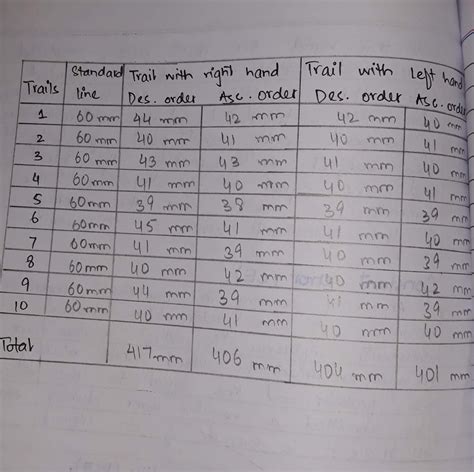 Trails Standard line Trail with right hand Trail with left hand
Des. order Asc. order Des. order Asc. order
1 60 mm 44 mm 42 mm 42 mm 40 mm
2 60 mm 40 mm 41 mm 40 mm 41 mm
3 60 mm 43 mm 43 mm 41 mm 40 mm
4 60 mm 41 mm 40 mm 40 mm 41 mm
5 60 mm 39 mm 38 mm 39 mm 39 mm
6 60mm 45 mm 41 mm 41 mm 40 mm
7 60mm 41 mm 39 mm 40 mm 39 mm
8 60mm 40 mm 42 mm 40 mm 42 mm
9 60mm 44 mm 39 mm mm 39 mm
10 60mm 40 mm 41 mm 40 mm 40 mm
Total 417mm 406 mm 404 mm 401 mm